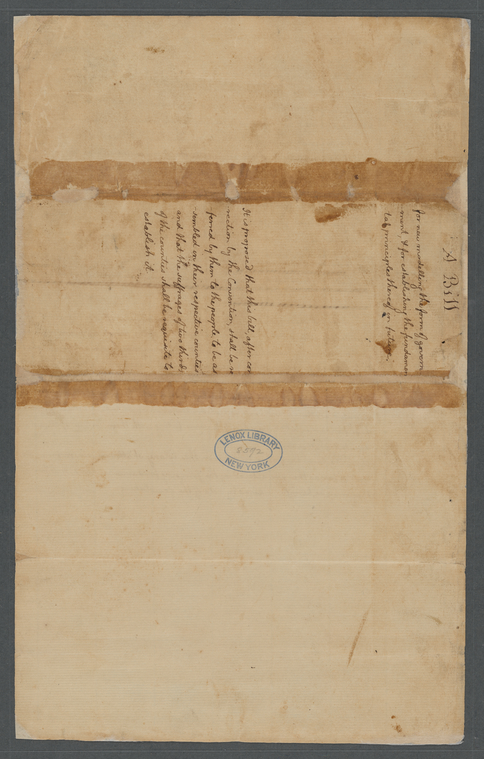 A Bill
for new modelling the form of govern
ment, & for establishing the fundamen
tal principles thereof in future.
It is proposed that this bill, after cor
rection by the Convention, shall be re
ferred by them to the people, to be as
sembled in their respective counties
and that the suffrages of two thirds
of the counties shall be requisite to
establish it.
LENOX LIBRARY
NEW YORK